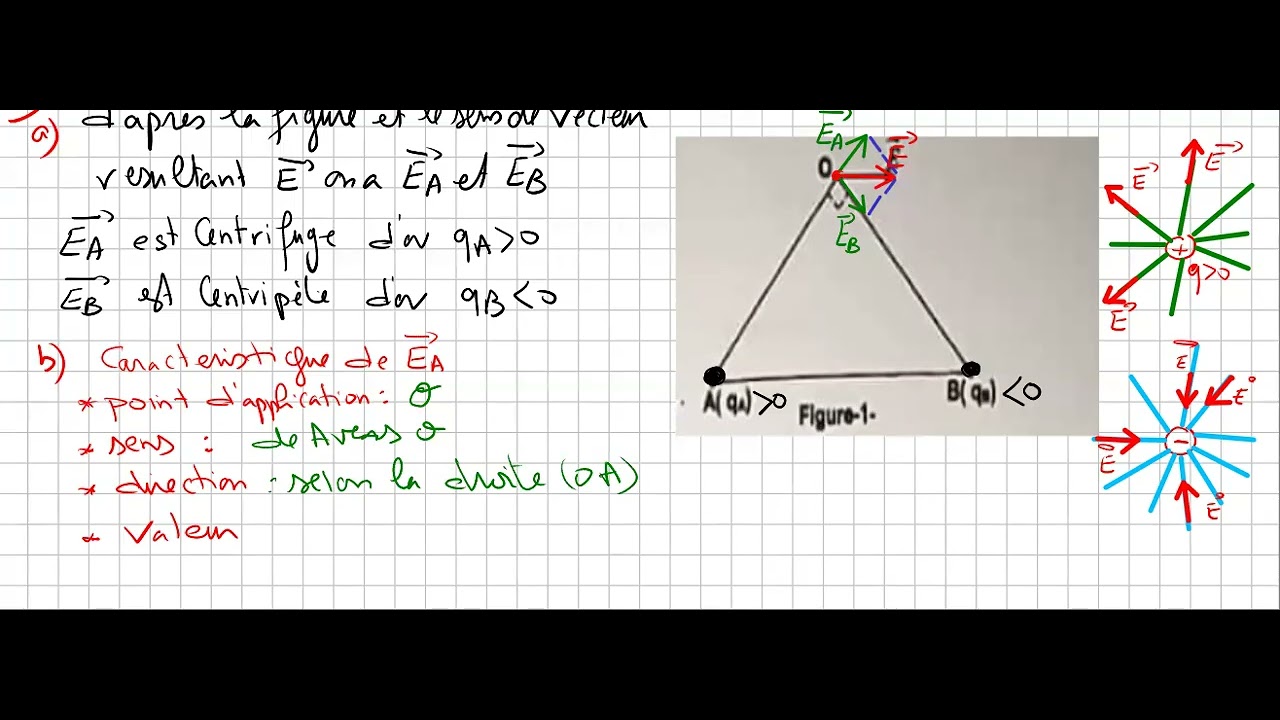 a) d'après la figure et le sens de vecteur
resultant E on a EA et EB
EA est Centrifuge d'ou qA>0
EB est Centripète d'ou qB<0
b) Caracteristique de EA
* point d'application : O
* sens : de A vers O
* direction : selon la droite (OA)
* Valeur
EA
E
O
EB
A(qA)>0
B(qB)<0
Figure-1-
E
E
+
q>0
E
E
E
E
-
E